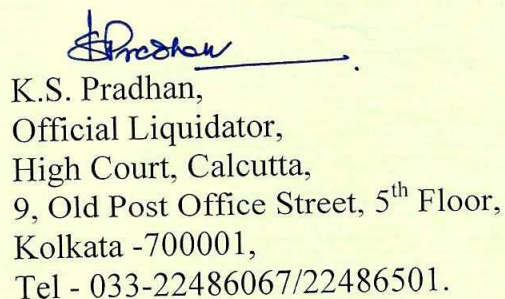 KSPradhan
K.S. Pradhan,
Official Liquidator,
High Court, Calcutta,
9, Old Post Office Street, 5th Floor,
Kolkata -700001,
Tel - 033-22486067/22486501.